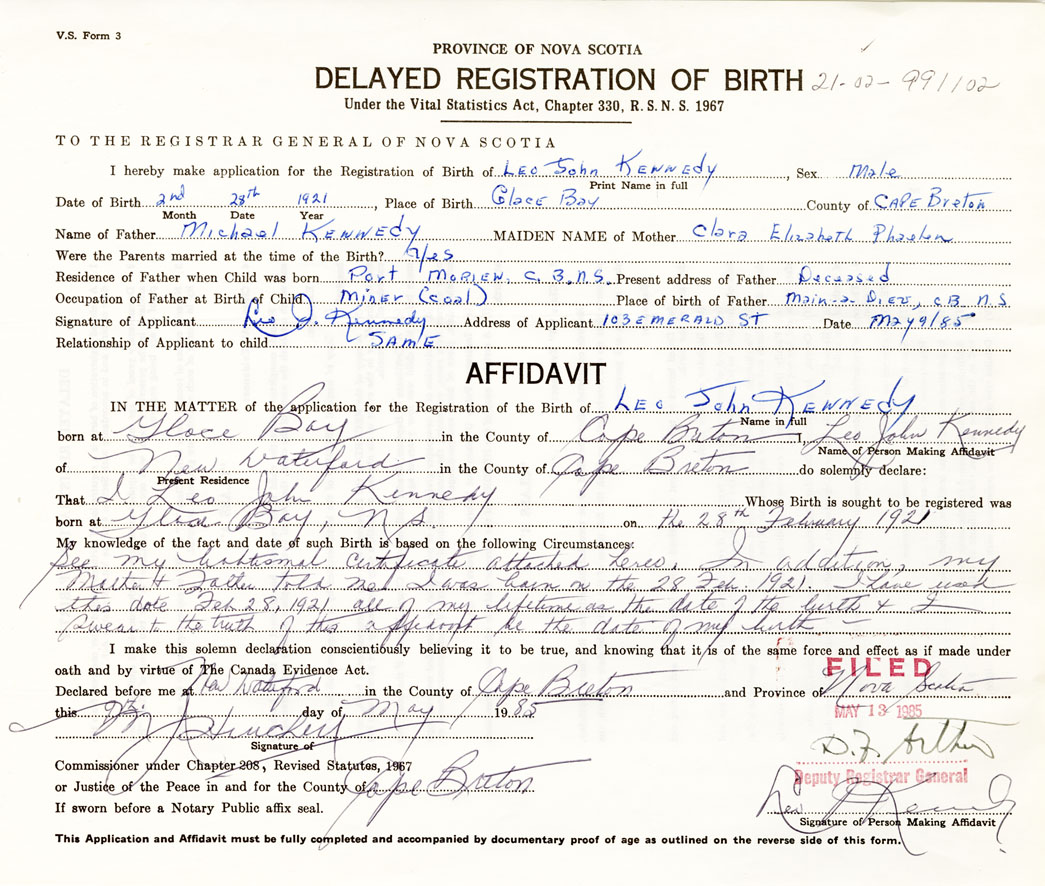 V.S. Form 3
PROVINCE OF NOVA SCOTIA
DELAYED REGISTRATION OF BIRTH 21-02-991102
Under the Vital Statistics Act, Chapter 330, R. S. N. S. 1967
TO THE REGISTRAR GENERAL OF NOVA SCOTIA
I hereby make application for the Registration of Birth of LEO John KENNEDY, Sex Male
Print Name in full
Date of Birth 2nd 28th 1921, Place of Birth Glace Bay County of CAPE Breton
Month Date Year
Name of Father Michael KENNEDY MAIDEN NAME of Mother Clara Elizabeth
Were the Parents married at the time of the Birth? Yes
Residence of Father when Child was born Port MORIEN. C.B.N.S. Present address of Father Deceased
Occupation of Father at Birth of Child Miner (coal) Place of birth of Father Main-a-Dieu, C.B. N.S.
Signature of Applicant Leo J. Kennedy Address of Applicant 103 EMERALD ST Date May 9/85
Relationship of Applicant to child SAME
AFFIDAVIT
IN THE MATTER of the application for the Registration of the Birth of LEO John KENNEDY
Name in full
born at Glace Bay in the County of Cape Breton I, Leo John Kennedy
Name of Person Making Affidavit
of New Waterford in the County of Cape Breton do solemnly declare:
Present Residence
That I Leo John Kennedy Whose Birth is sought to be registered was
born at Glace Bay, N.S. on the 28th February 1921
My knowledge of the fact and date of such Birth is based on the following Circumstances:
See my babtismal certificate attached hereto. In addition, my
Mother & Father told me I was born on the 28 Feb. 1921. I have used
this date Feb 28, 1921 all of my lifetime as the date of the birth & I
swear to the truth of this affidavit be the date of my birth.
I make this solemn declaration conscientiously believing it to be true, and knowing that it is of the same force and effect as if made under
oath and by virtue of The Canada Evidence Act.
FILED
Declared before me at New Waterford in the County of Cape Breton and Province of Nova Scotia
this 9th day of May 1985
MAY 13 1985
Signature of
Commissioner under Chapter 208, Revised Statutes, 1967
Deputy Registrar General
or Justice of the Peace in and for the County of Cape Breton
If sworn before a Notary Public affix seal.
Leo J Kennedy
Signature of Person Making Affidavit
This Application and Affidavit must be fully completed and accompanied by documentary proof of age as outlined on the reverse side of this form.